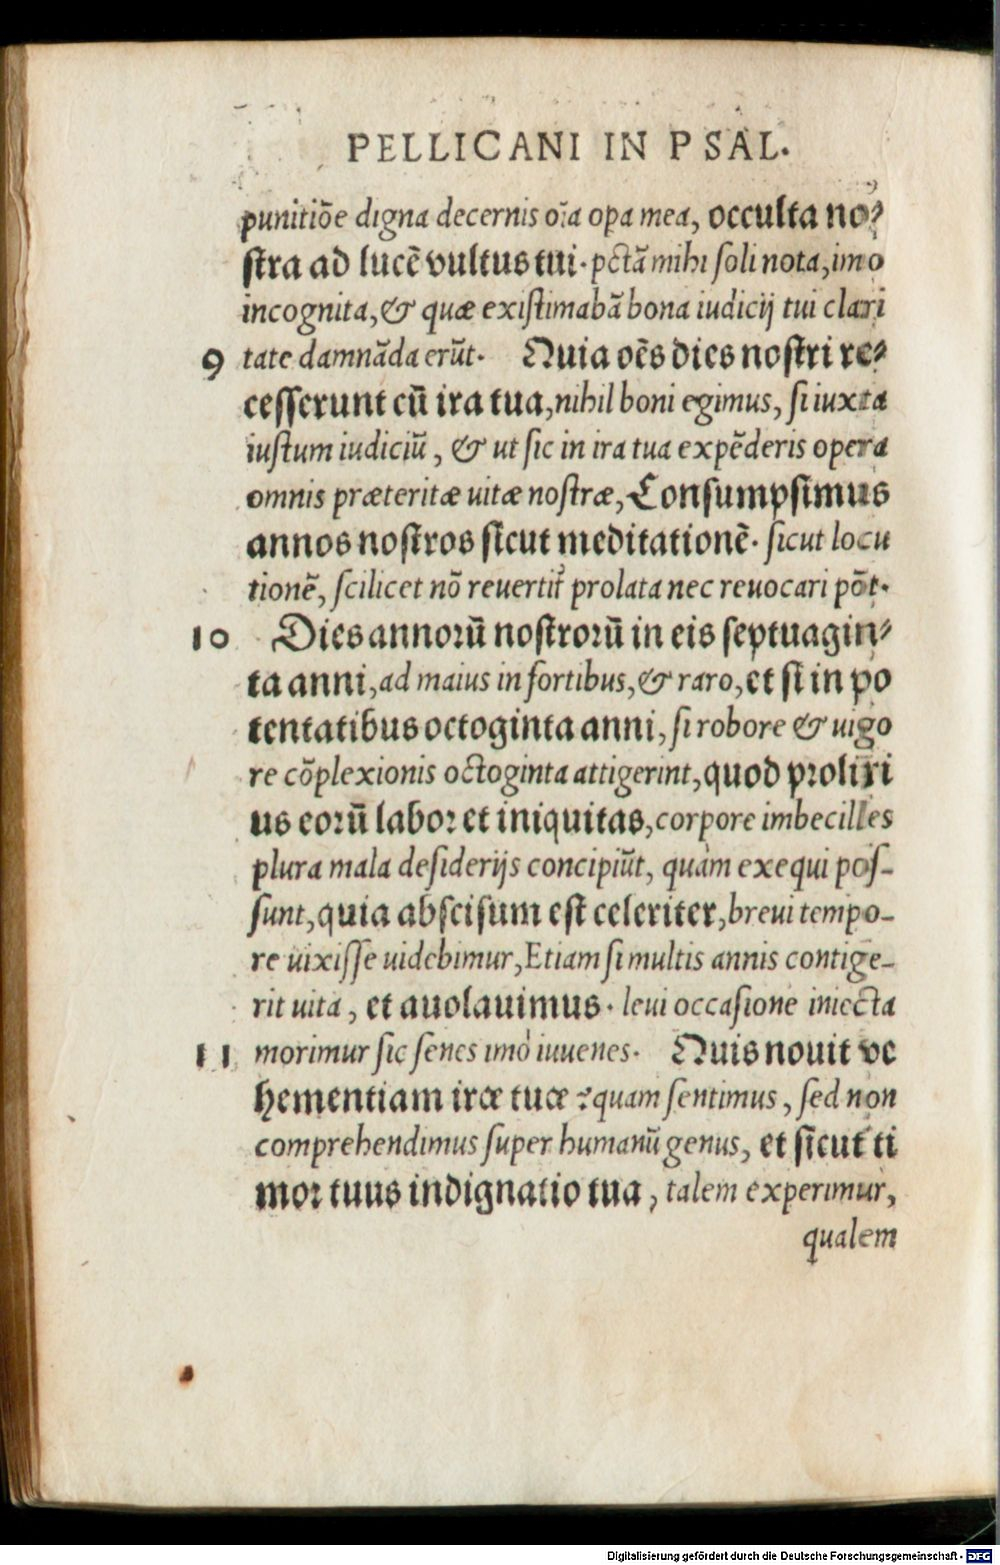 PELLICANI IN PSAL.
punitiõe digna decernis oĩa opa mea, occulta no⸗
ſtra ad lucẽ vultus tui. pctã mihi ſoli nota, imo
incognita, & quæ exiſtimabã bona iudicij tui clari
9 tate damnãda erũt. Quia oẽs dies noſtri re⸗
ceſſerunt cũ ira tua, nihil boni egimus, ſi iuxta
iuſtum iudiciũ, & ut ſic in ira tua expẽderis opera
omnis præteritæ uitæ noſtræ, Conſumpſimus
annos noſtros ſicut meditationẽ. ſicut locu
tionẽ, ſcilicet nõ reuertit᷑ prolata nec reuocari põt.
10 Dies annoꝛũ noſtroꝛũ in eis ſeptuagin⸗
ta anni, ad maius in fortibus, & raro, et ſi in po
tentatibus octoginta anni, ſi robore & uigo
re cõplexionis octoginta attigerint, quod pꝛolixi
us eoꝛũ laboꝛ et iniquitas, corpore imbecilles
plura mala deſiderijs concipiũt, quàm exequi poſ-
ſunt, quia abſciſum eſt celeriter, breui tempo-
re uixiſſe uidebimur, Etiam ſi multis annis contige-
rit uita, et auolauimus. leui occaſione iniecta
11 morimur ſic ſenes imò iuuenes. Quis nouit ve
hementiam iræ tuæ ? quam ſentimus, ſed non
comprehendimus ſuper humanũ genus, et ſicut ti
moꝛ tuus indignatio tua, talem experimur,
qualem
Digitalisierung gefördert durch die Deutsche Forschungsgemeinschaft - DFG